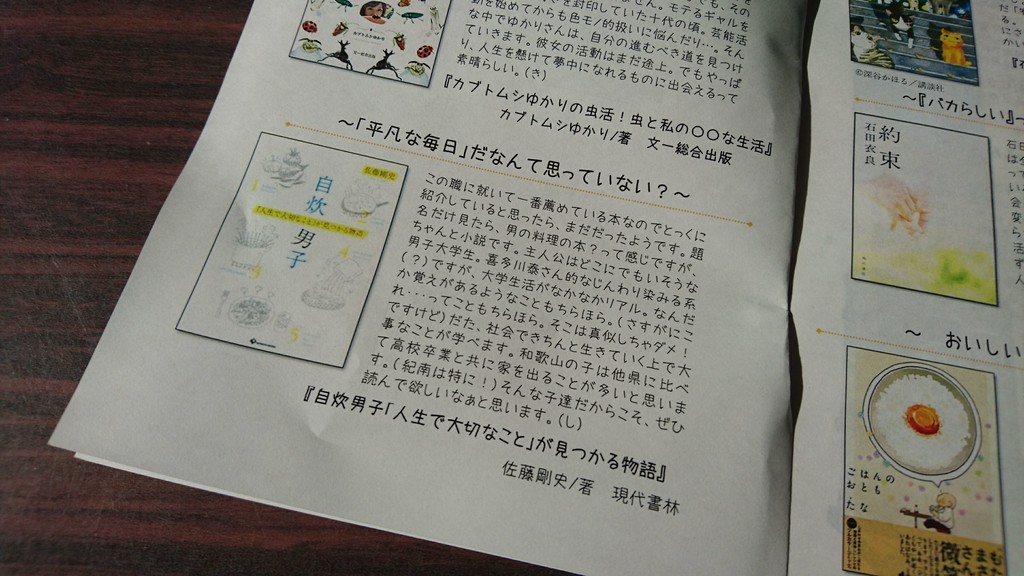 を封印していた十代の頃。芸能活
動を始めてからも色モノ的扱いに悩んだり…。そん
な中でゆかりさんは、自分の進むべき道を見つけ
ていきます。彼女の活動はまだ途上。でもやっぱ
り、人生を懸けて夢中になれるものに出会えるって
素晴らしい。(き)
『カブトムシゆかりの虫活！虫と私の〇〇な生活』
カブトムシゆかり/著 文一総合出版
～「平凡な毎日」だなんて思っていない？～
佐藤剛史
自炊男子
「人生で大切なこと」が見つかる物語
この職に就いて一番薦めている本なのでとっくに
紹介していると思ったら、まだだったようです。題
名だけ見たら、男の料理の本？って感じですが、
ちゃんと小説です。主人公はどこにでもいそうな
男子大学生。喜多川泰さん的なじんわり染みる系
(？)ですが、大学生活がなかなかリアル。なんだ
か覚えがあるようなこともちらほら。(さすがにこ
れ...ってこともちらほら。そこは真似しちゃダメ！
ですけど)だた、社会できちんと生きていく上で大
事なことが学べます。和歌山の子は他県に比べ
て高校卒業と共に家を出ることが多いと思いま
す。(紀南は特に！)そんな子達だからこそ、ぜひ
読んで欲しいなぁと思います。(し)
『自炊男子「人生で大切なこと」が見つかる物語』
佐藤剛史/著 現代書林
©深谷かほる/講談社
～『バカらしい』～
約束
石田衣良
～ おいしい
ごはんの
おとも
たな